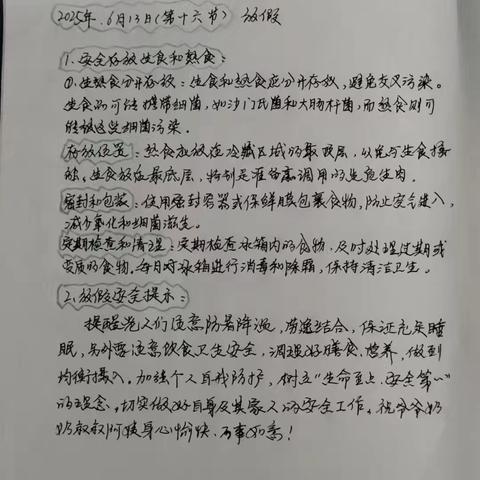 2025年.6月13日(第十六节) 放假
1.安全存放生食和熟食:
①.生熟食分开存放:生食和熟食应分开存放,避免交叉污染。
生食可能携带细菌,如沙门氏菌和大肠杆菌,而熟食则可
能被这些细菌污染.
存放位置:熟食应放在冷藏区域的最顶层,以免与生食接
触,生食放在最底层,特别是准备烹调用的生鱼生肉.
密封和包装:使用密封容器或保鲜膜包裹食物,防止空气进入,
减少氧化和细菌滋生。
定期检查和清理:定期检查冰箱内的食物.及时处理过期或
变质的食物.每月对冰箱进行消毒和除霜,保持清洁卫生。
2.放假安全提示:
提醒老人们注意防暑降温,劳逸结合,保证充足睡
眠,另外要注意饮食卫生安全,调理好膳食.营养.做到
均衡摄入.加强个人自我防护,树立"生命至上.安全第一"
的理念.切实做好自身及其家人的安全工作.祝爷爷奶
奶叔叔阿姨身心愉快.万事如意!